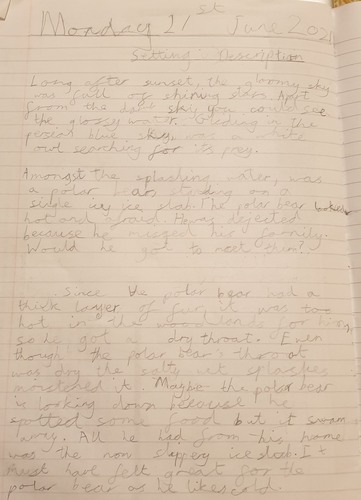 Monday 21st June 2021
Setting Description
Long after sunset, the gloomy sky
was full of shining stars. Apart
from the dark sky, you could see
the glossy water. Gliding in the
blue sky, was a white
owl searching for its prey.
Amongst the splashing water, was
a polar bear standing on a
single icy ice slab. The polar bear looked
hot and afraid. He was dejected
because he missed his family.
Would he got to meet them?
Since the polar bear had a
thick layer of fur, it was too
hot in the woodlands for him
so he got a dry throat. Even
though the polar bear's throat
was dry the salty wet splashes
moistened it. Maybe the polar bear
is looking down because he
spotted some food but it swam
away. All he had from his home
was the non slippery ice slab. It
must have felt great for the
polar bear as he likes cold.